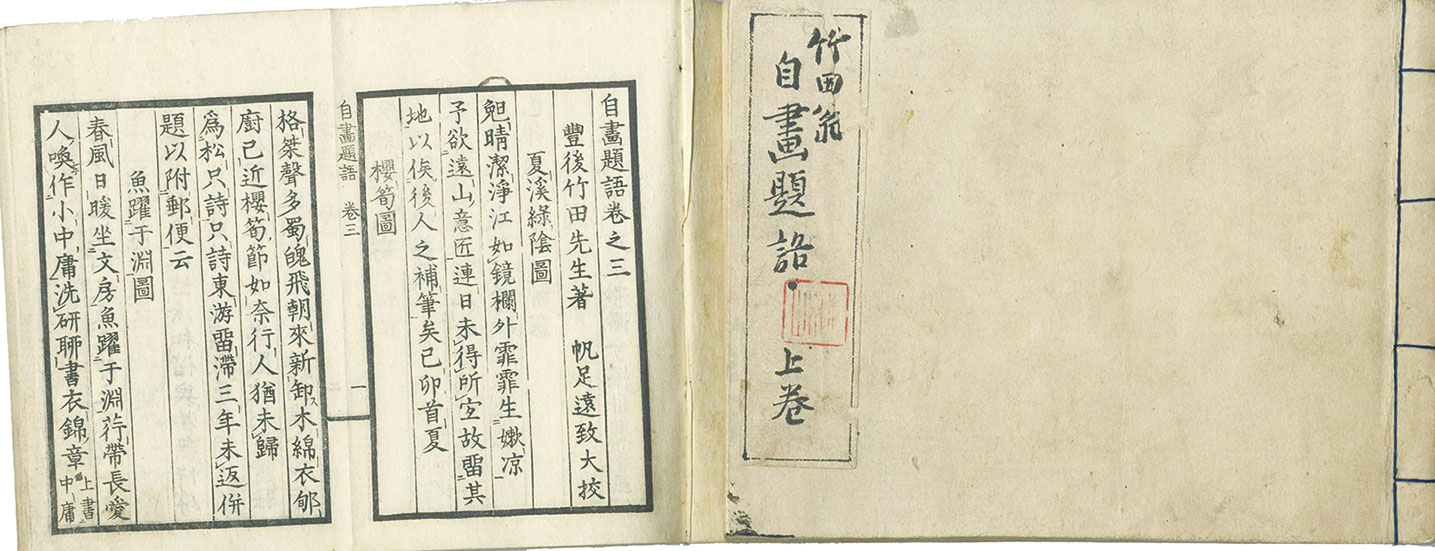 竹田翁
自畫題語 上卷
自畫題語卷之三
豐後竹田先生著 帆足遠致大挍
夏溪綠陰圖
晴潔淨江如鏡欄外霏霏生嫩凉
予欲遠山意匠連日未得所宐故畱其
地以俟後人之補筆矣已卯首夏
櫻筍圖
自畫題語 卷三 一
格桀聲多蜀魄飛朝來新卸木綿衣郇
廚已近櫻筍節如奈行人猶未歸
爲松只詩只詩東游畱滯三年未返併
題以附郵便云
魚躍于淵圖
春風日暖坐文房魚躍于淵荇帶長愛
人喚作小中庸洗研聊書衣錦章 上書中庸